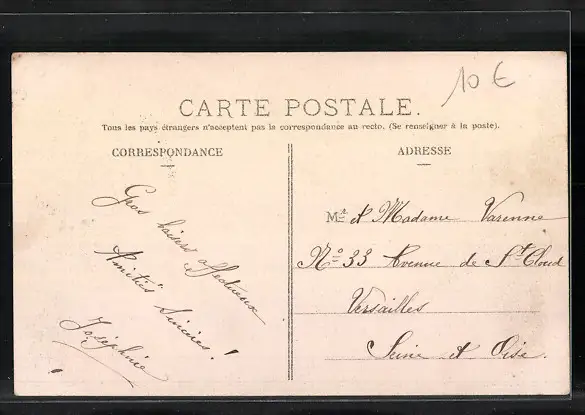 10 €
CARTE POSTALE.
Tous les pays étrangers n'acceptent pas la correspondance au recto. (Se renseigner à la poste).
CORRESPONDANCE
Gros baisers affectueux
Amitiés Sincères !
Joséphine !
ADRESSE
Mr et Madame Varenne
No 33 Avenue de St Cloud
Versailles
Seine et Oise.